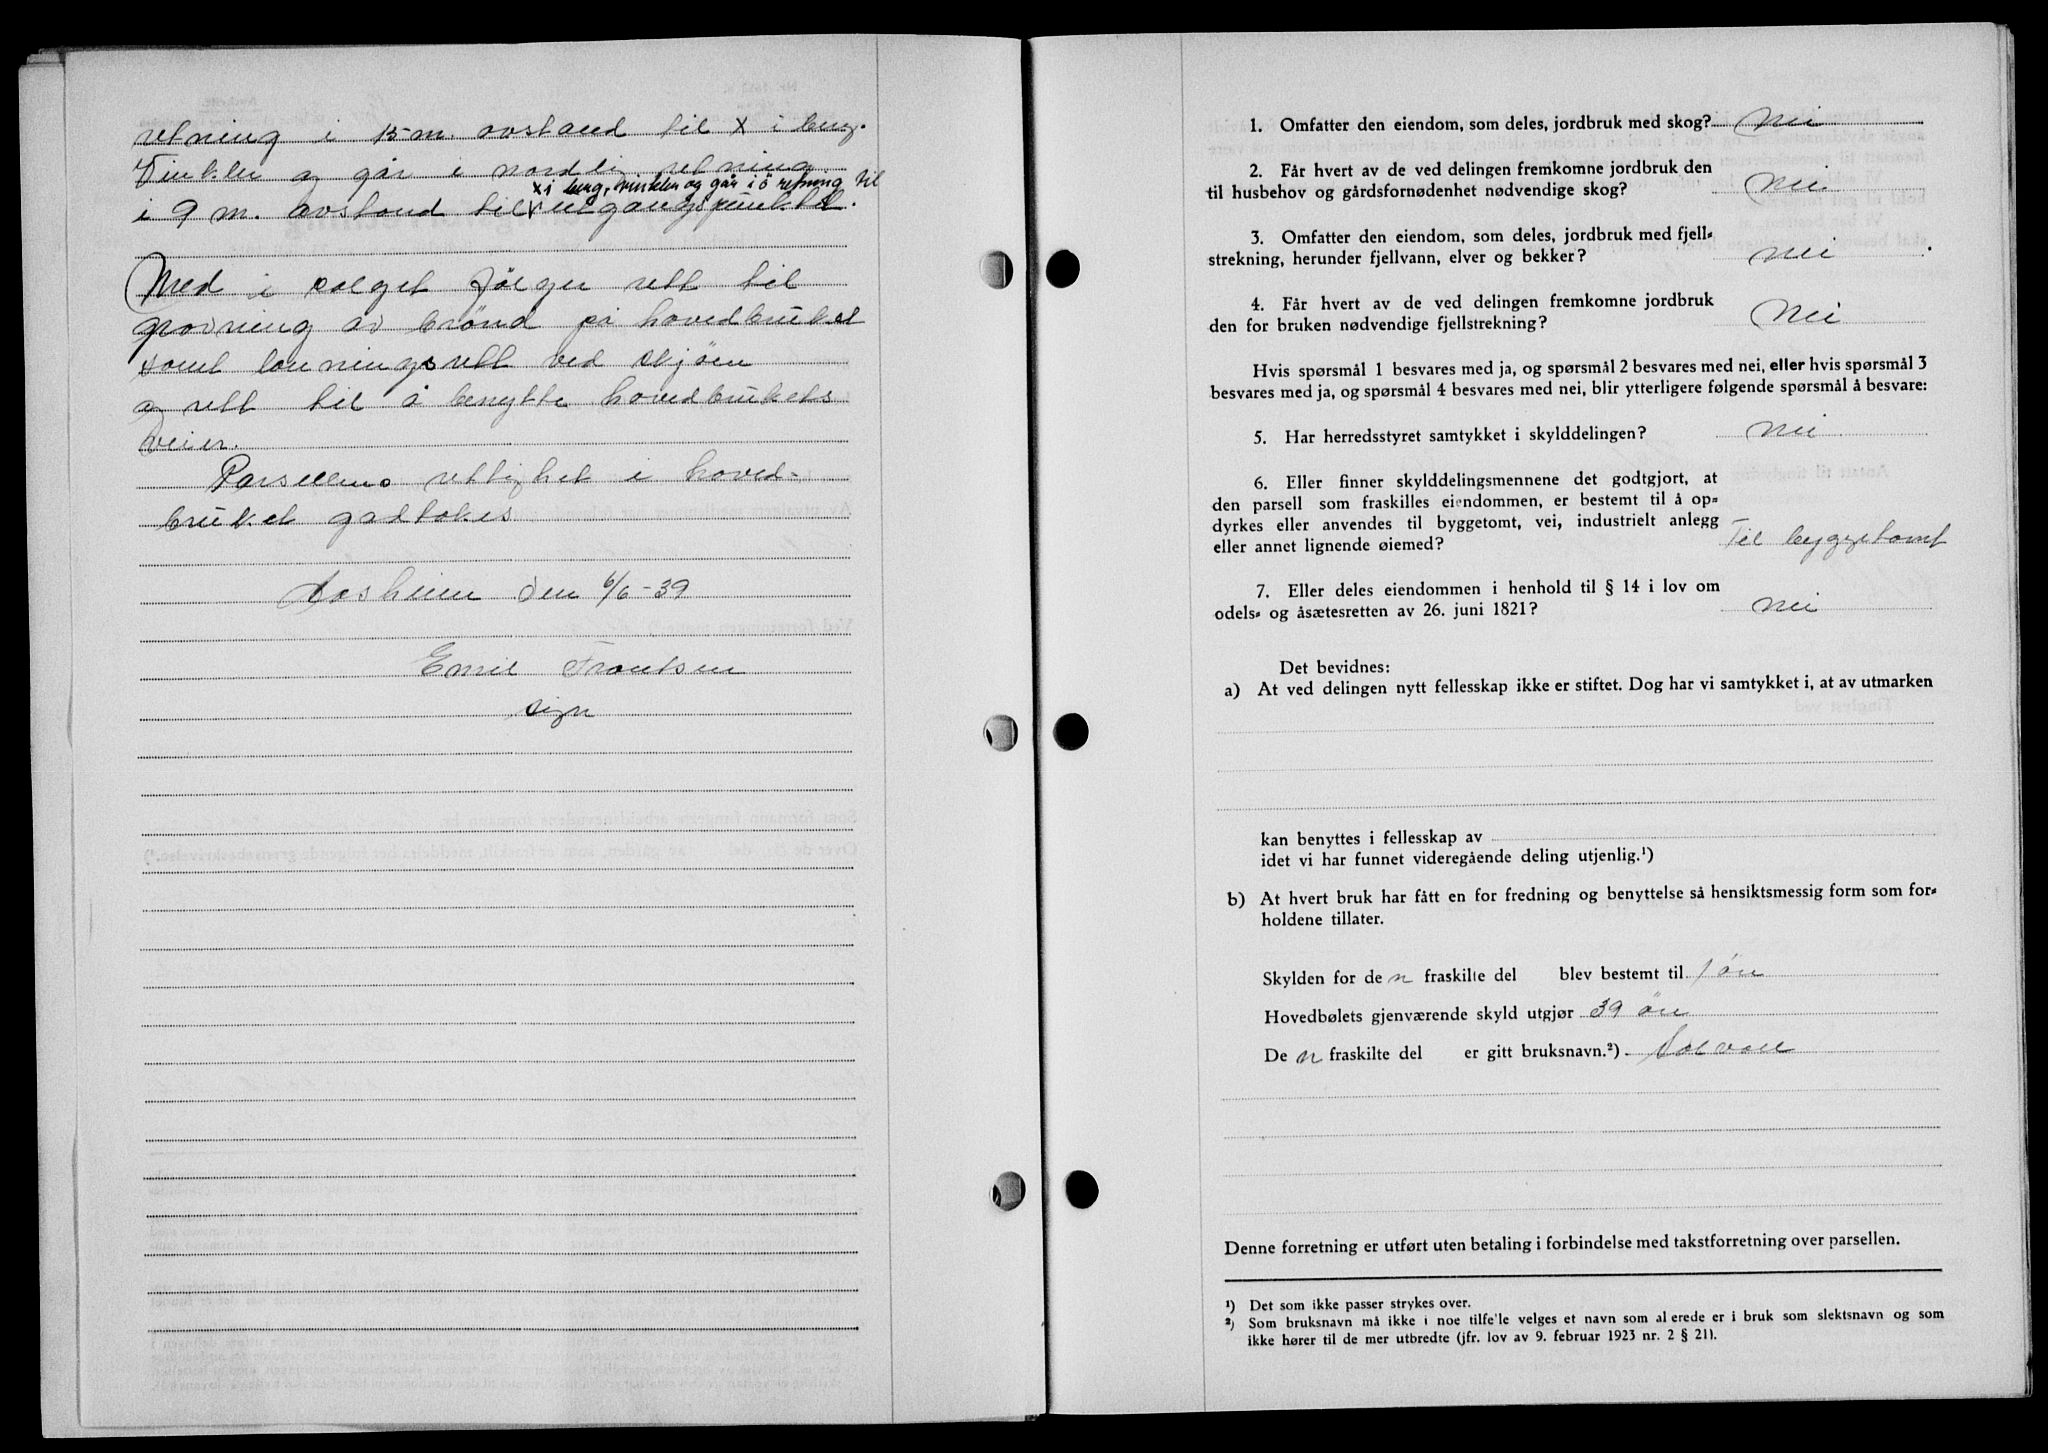 retning i 15 m. avstand til x i berg.
Vinkler og går i nordlig retning
x i berg, vinkler og går i ö retning til
i 9 m. avstand til utgangspunktet.
Med i salget følger rett til
gravning av brønd på hovedbruket
samt lønningsrett ved sjøen
og rett til å benytte hovedbrukets
veier.
Parsellens rettighet i hoved-
bruket godtokes
Aasheim den 6/6-39
Emil Frantsen
sign
1. Omfatter den eiendom, som deles, jordbruk med skog? Nei
2. Får hvert av de ved delingen fremkomne jordbruk den
til husbehov og gårdsfornødenhet nødvendige skog? Nei
3. Omfatter den eiendom, som deles, jordbruk med fjell=
strekning, herunder fjellvann, elver og bekker? Nei
4. Får hvert av de ved delingen fremkomne jordbruk
den for bruken nødvendige fjellstrekning? Nei
Hvis spørsmål 1 besvares med ja, og spørsmål 2 besvares med nei, eller hvis spørsmål 3
besvares med ja, og spørsmål 4 besvares med nei, blir ytterligere følgende spørsmål å besvare:
5. Har herredsstyret samtykket i skylddelingen? Nei
6. Eller finner skylddelingsmennene det godtgjort, at
den parsell som fraskilles eiendommen, er bestemt til å op=
dyrkes eller anvendes til byggetomt, vei, industrielt anlegg
eller annet lignende øiemed? Til byggetomt
7. Eller deles eiendommen i henhold til § 14 i lov om
odels= og åsætesretten av 26. juni 1821? Nei
Det bevidnes:
a) At ved delingen nytt fellesskap ikke er stiftet. Dog har vi samtykket i, at av utmarken
kan benyttes i fellesskap av
idet vi har funnet videregående deling utjenlig.¹)
b) At hvert bruk har fått en for fredning og benyttelse så hensiktsmessig form som for=
holdene tillater.
Skylden for de n fraskilte del blev bestemt til 1 øre
Hovedbølets gjenværende skyld utgjør 39 øre
De n fraskilte del er gitt bruksnavn.²) Solvoll
Denne forretning er utført uten betaling i forbindelse med takstforretning over parsellen.
¹) Det som ikke passer strykes over.
²) Som bruksnavn må ikke i noe tilfe'le velges et navn som al erede er i bruk som slektsnavn og som
ikke hører til de mer utbredte (jfr. lov av 9. februar 1923 nr. 2 § 21).